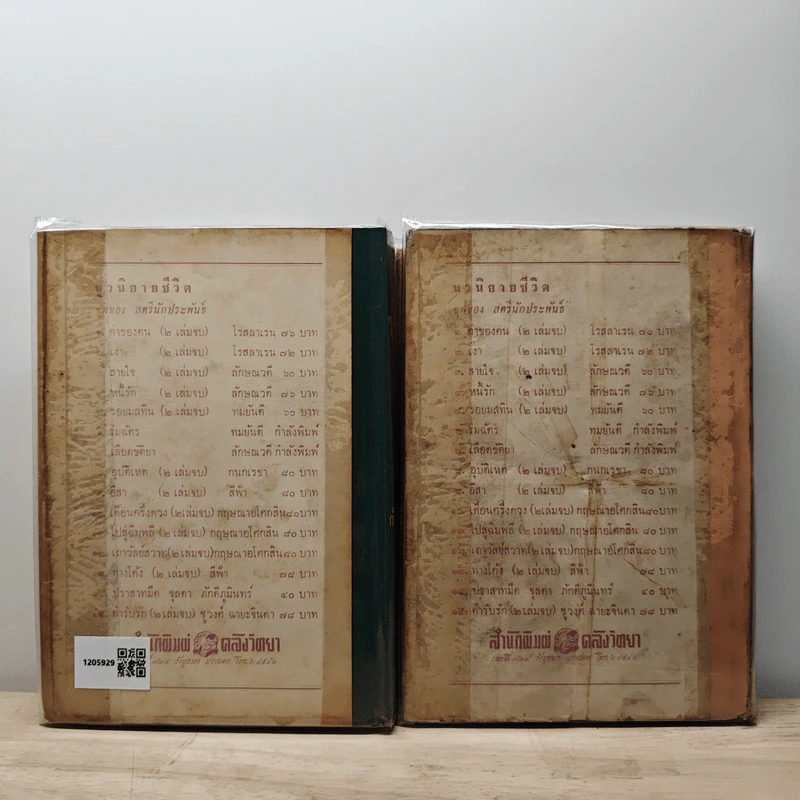 นวนิยายชีวิต
ชุดของ สตรีนักประพันธ์
ค่าของคน (๒ เล่มจบ) โรสลาเรน ๗๖ บาท
เงา (๒ เล่มจบ) โรสลาเรน ๗๒ บาท
สายใจ (๒ เล่มจบ) ลักษณวดี ๖๐ บาท
หนี้รัก (๒ เล่มจบ) ลักษณวดี ๗๖ บาท
รอยมลทิน (๒ เล่มจบ) ทมยันตี ๖๐ บาท
ร่มฉัตร ทมยันตี กำลังพิมพ์
เลือดขัติยา ลักษณวดี กำลังพิมพ์
อุบัติเหต (๒ เล่มจบ) กนกเรขา ๘๐ บาท
อีสา (๒ เล่มจบ) สีฟ้า ๘๐ บาท
เดือนครึ่งดวง (๒เล่มจบ) กฤษณาอโศกสิน๘๐บาท
ไปสู่ฉิมพลี (๒ เล่มจบ) กฤษณาอโศกสิน ๘๐ บาท
เถาวัลย์สวาท(๒ เล่มจบ)กฤษณาอโศกสิน๘๐ บาท
ทางโค้ง (๒ เล่มจบ) สีฟ้า ๗๘ บาท
ปราสาทมืด จุลดา ภักดีภูมินทร์ ๔๐ บาท
คำรับรัก (๒ เล่มจบ) ชูวงศ์ ฉายะจินดา ๗๘ บาท
สำนักพิมพ์ คลังวิทยา
1205929
นวนิยายชีวิต
ชุดของ สตรีนักประพันธ์
ค่าของคน (๒ เล่มจบ) โรสลาเรน ๗๖ บาท
๒. เงา (๒ เล่มจบ) โรสลาเรน ๗๒ บาท
๓. สายใจ (๒ เล่มจบ) ลักษณวดี ๖๐ บาท
หนี้รัก (๒ เล่มจบ) ลักษณวดี ๗๖ บาท
รอยมลทิน (๒ เล่มจบ) ทมยันตี ๖๐ บาท
ร่มฉัตร ทมยันตี กำลังพิมพ์
เลือดขัติยา ลักษณวดี กำลังพิมพ์
อุบัติเหต (๒ เล่มจบ) กนกเรขา ๘๐ บาท
อีสา (๒ เล่มจบ) สีฟ้า ๘๐ บาท
เดือนครึ่งดวง (๒เล่มจบ) กฤษณาอโศกสิน๘๐บาท
ไปสู่ฉิมพลี (๒ เล่มจบ) กฤษณาอโศกสิน ๘๐ บาท
เถาวัลย์สวาท(๒ เล่มจบ)กฤษณาอโศกสิน๘๐ บาท
ทางโค้ง (๒ เล่มจบ) สีฟ้า ๗๘ บาท
ปราสาทมืด จุลดา ภักดีภูมินทร์ ๔๐ บาท
คำรับรัก (๒ เล่มจบ) ชูวงศ์ ฉายะจินดา ๗๘ บาท
สำนักพิมพ์ คลังวิทยา